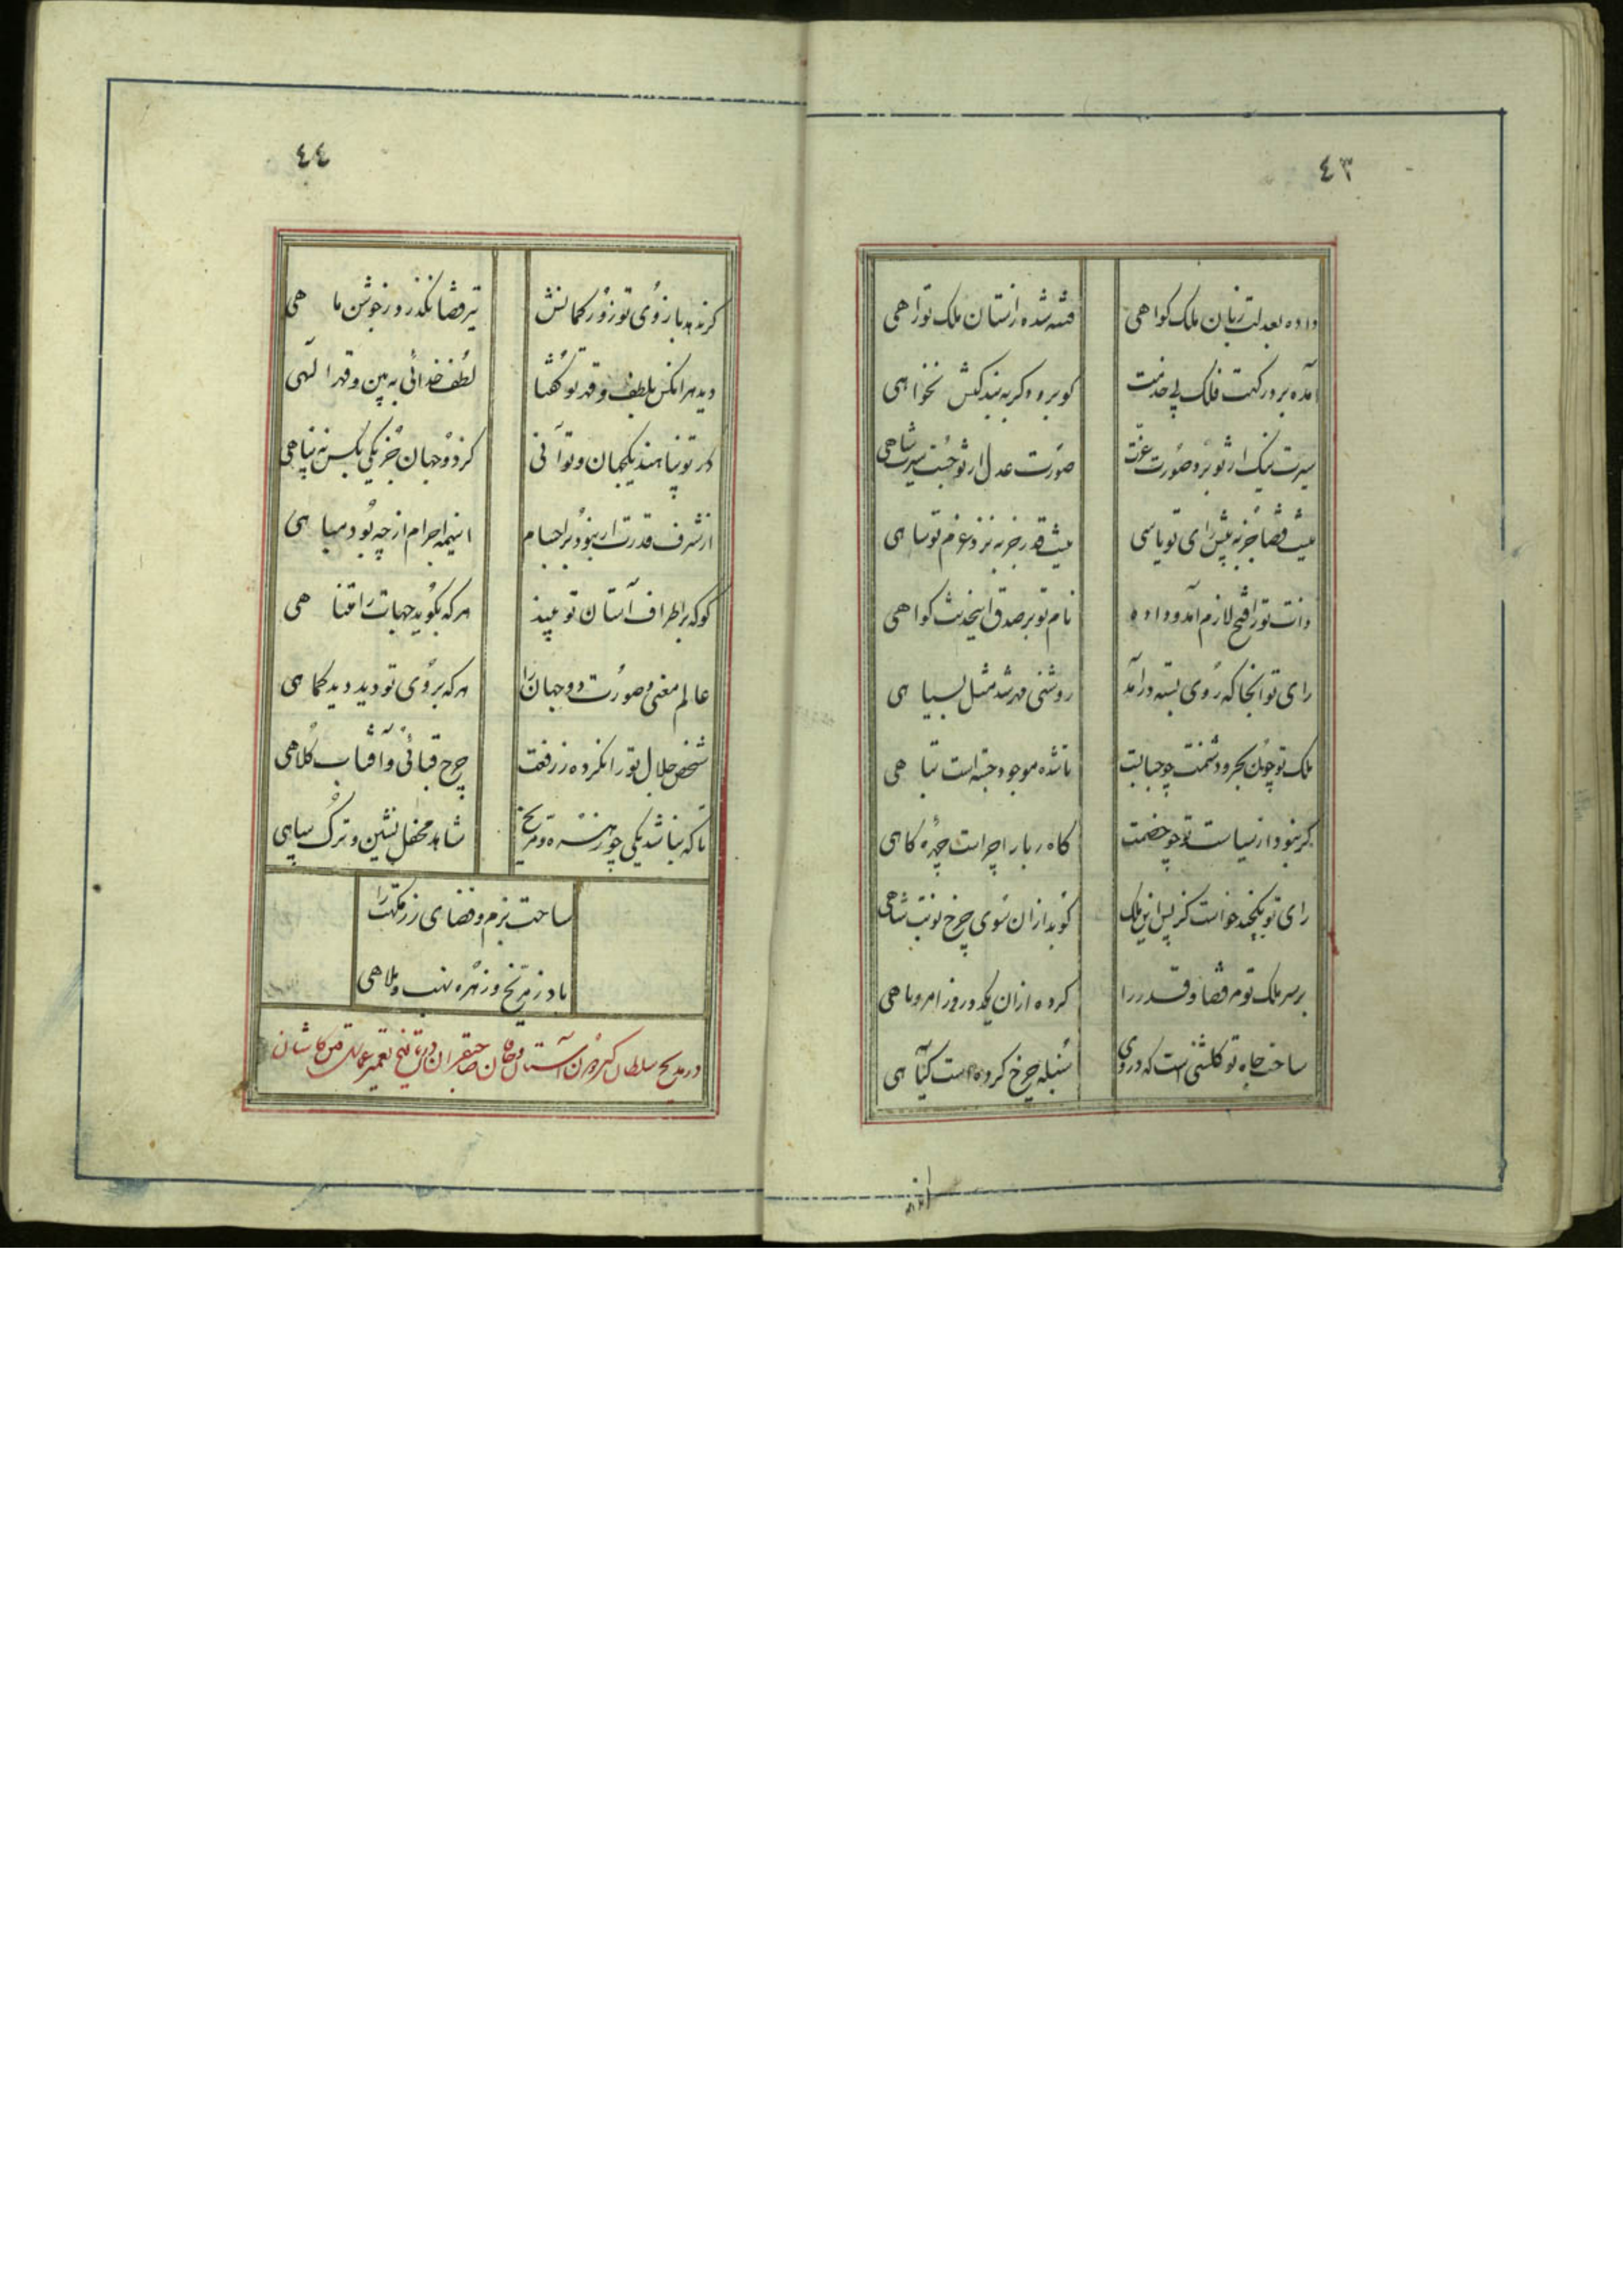 ٤٣
داده بعدلت زبان ملک کواهی
فتنه شده زاستان ملک تو راهی
آمده بر درکهت فلک پی خدمت
کو برو و کر به بندکیش نخواهی
سیرت نیک از تو برد صورت عزت
صورت عدل از تو جست سیرت شاهی
نیست قضا جز به پیش رای تو یاسی
نیست قدر جز به نزد عزم تو ساهی
ذات تو را فتح لازم آمد و داده
نام تو بر صدق اینحدیث کواهی
رای تو انجا که روی بسته درآمد
روشنی مهر شد مثل بسیاهی
ملک تو چون بحر و دشمنت چو حبابت
ناشده موجود جسته است تباهی
کر نبود از سیاست تو چو خصمت
کاه ربا را چراست چهره کاهی
رای تو یکچند خواست کز پس این ملک
کوبد ازان سوی چرخ نوبت شاهی
بر سر ملک تو مر قضا و قدر را
کرده ازان یکدو روز امر و ناهی
ساحت جاه تو کلشنی است که در وی
سنبله چرخ کرده است کیاهی
٤٤
کر ندهد بازوی تو زور کمانش
تیر قضا نکذرد ز جوشن ماهی
دید هر انکس بلطف و قهر تو کفتا
لطف خدائی به بین و قهر الهی
در تو پناهند یکجهان و تو آنی
کز دو جهان جز یکی بکس نه پناهی
از شرف قدرت ار نبود بر اجسام
اینهمه اجرام از چه بود مباهی
کو که بر اطراف آستان تو بیند
هر که بکوید جهات را متناهی
عالم معنی و صورت دو جهان را
هر که بروی تو دید دید کماهی
شخص جلال تو را نکرده ز رفعت
چرخ قبائی و آفتاب کلاهی
تا که نباشد یکی چو زهره و مریخ
شاهد محفل نشین و ترک سپاهی
ساحت بزم و فضای رزمکهت را
باد ز مریخ و زهره نهب و ملاهی
در مدیح سلطان کردون آستان و خاقان صاحبقران و تاریخ تعمیر عمارت قم و کاشان